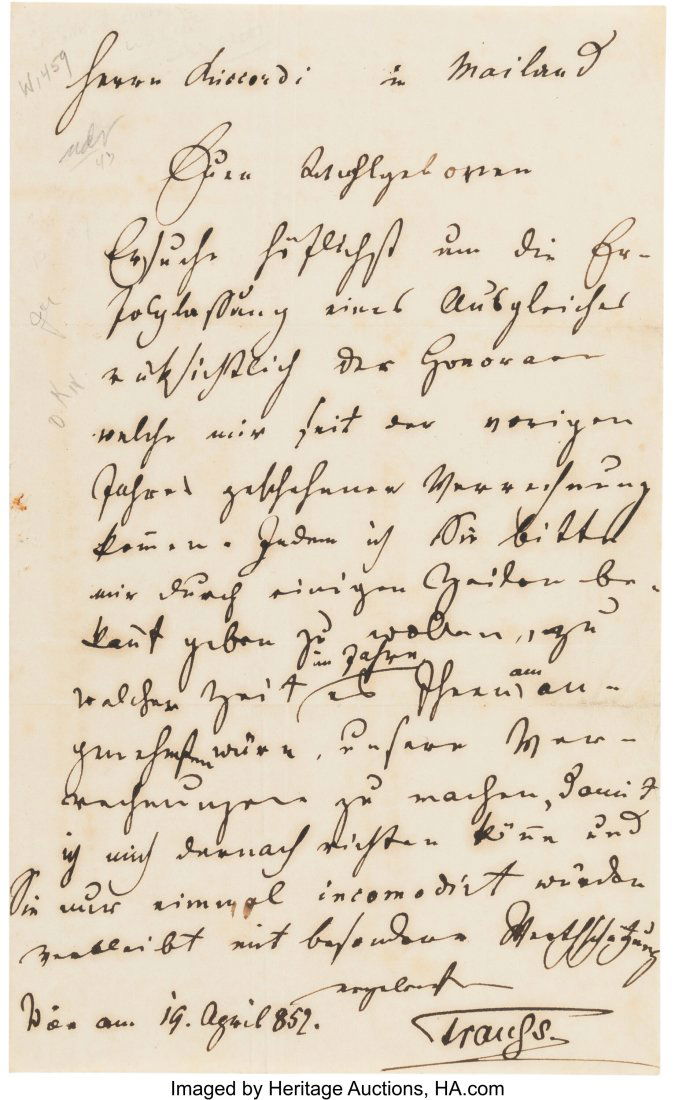 W1459
Herrn Riccordi in Mailand
Euer Wohlgeboren
Ersuche höflichst um die Er-
folglassung eines Ausgleiches
rüksichtlich der Honorare
welche mir seit der vorigen
Jahres geschehenen Verrechnung
kom̄en. Indem ich Sie bitte
mir durch einigen Zeilen be-
kan̄t geben zu wollen, zu
im Jahre
welcher Zeit es Ihnen am an-
genehmsten wäre, unsere Ver-
rechnungen zu machen, damit
ich mich darnach richten kön̄e und
Sie nur einmal incomodirt würden
verbleibt mit besonderer Werthschätzung
ergebenst
Wien am 19. April 852.
Strauss
Imaged by Heritage Auctions, HA.com